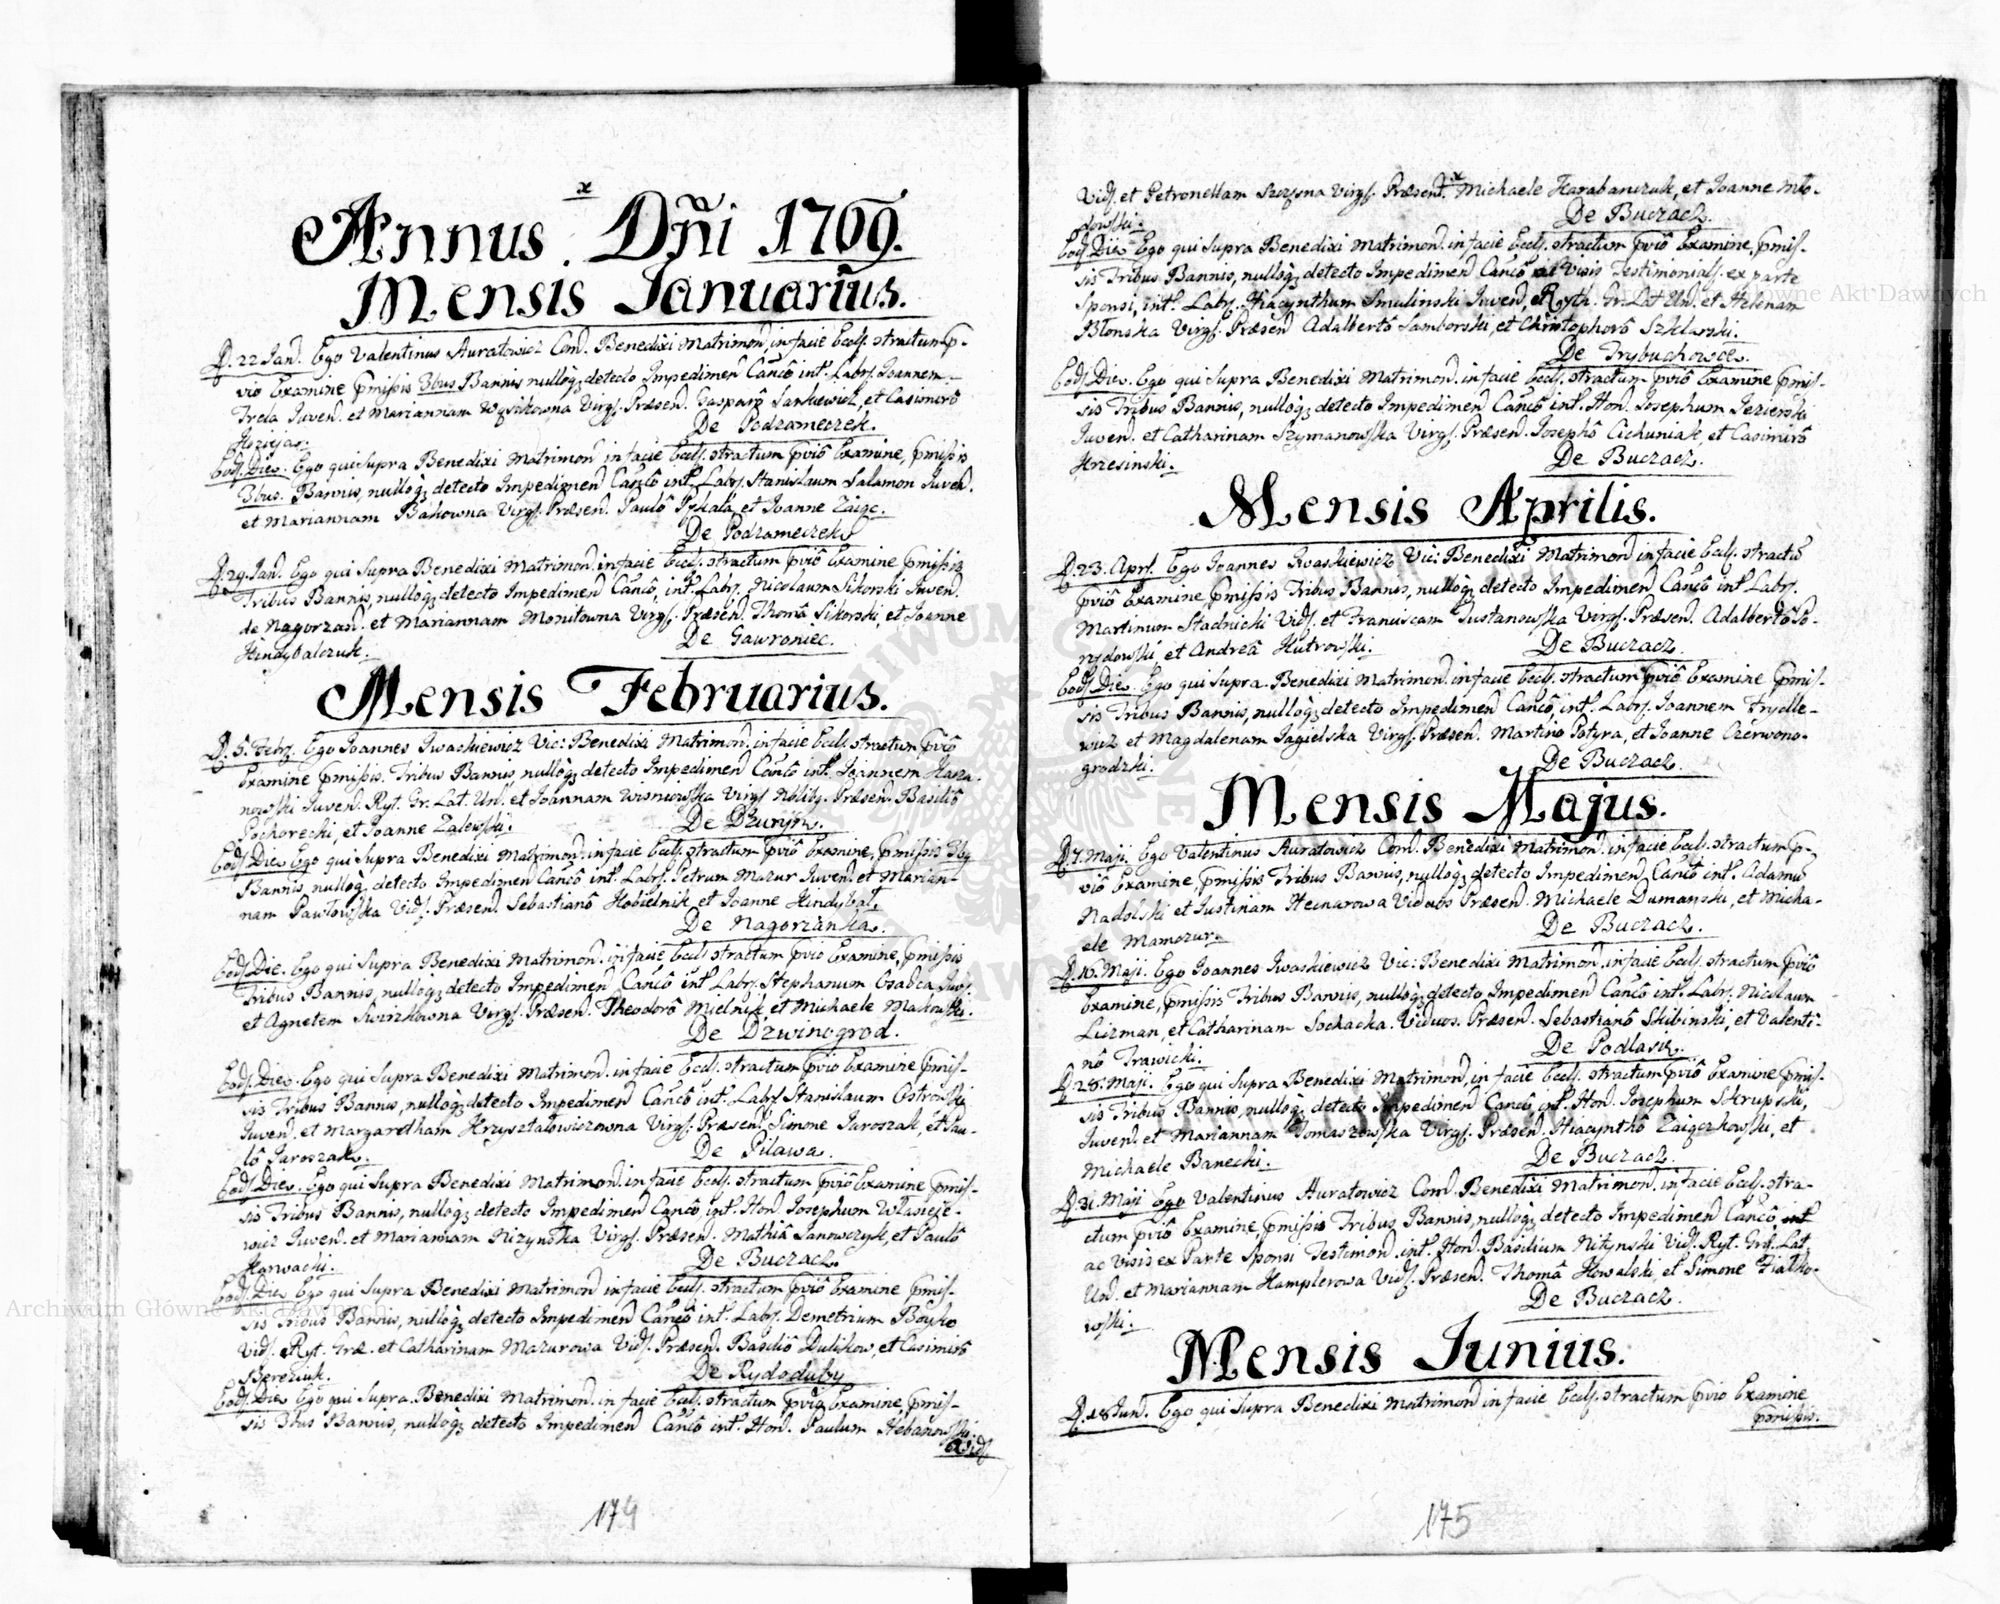 Annus Dñi 1769.
Mensis Januarius.
D. 22 Jan. Ego Valentinus Auratowicz Com. Benedixi Matrimon. in facie Eccls. stractum p-
vio Examine pmissis 3bus Bannis nulloq detecto Impedimen Canco int. Labr. Joannem
Trela Juven. et Mariannam Wąsikowna Virg. Præsen. Gasparô Sankiewicz, et Casimirô
Koziejas. De Podzameczek.
Eod. Die. Ego qui Supra Benedixi Matrimon in facie Eccls. stractum pviô Examine, pmissis
3bus. Bannis, nulloq detecto Impedimen Canco int. Labr. Stanislaum Salamon Juven.
et Mariannam Bakowna Virg. Præsen. Paulô Pykala, et Joanne Zaige.
De Podzameczek
D. 29. Jan. Ego qui Supra Benedixi Matrimon. in facie Eccls. stractum pviô Examine pmissis
Tribus Bannis, nulloq detecto Impedimen Canco, int. Labr. Nicolaum Sikorski Juven.
de Nagorzan. et Mariannam Monitowna Virg. Præsen. Thomâ Sikorski, et Joanne
Kindybalczuk. De Gawroniec.
Mensis Februarius.
D. 5. Febr. Ego Joannes Iwaskiewicz Vic: Benedixi Matrimon. in facie Eccls. stractum pviô
Examine pmissis. Tribus Bannis, nulloq detecto Impedimen Canco int. Joannem Kaza-
nowski Juven. Ryt. Gr. Lat. Un. et Joannam Wisniowska Virg Nobily. Præsen. Basiliô
Pochorecki, et Joanne Zalewski. De Dzuryn.
Eod. Die Ego qui Supra Benedixi Matrimon. in facie Eccls. stractum pviô Examine, pmissis 3bq
Bannis, nulloq detecto Impedimen Canco int. Labr. Petrum Mazur Juven. et Marian-
nam Pawlowska Vid. Præsen. Sebastianô Kobielnik, et Joanne Kindybal.
De Nagorzanka.
Eod. Die. Ego qui Supra Benedixi Matrimon. in facie Eccls stractum pvio Examine, pmissis
Tribus Bannis, nulloq detecto Impedimen Canco int Labr. Stephanum Osadca Juv.
et Agnetem Swirzkowna Virg. Præsen. Theodorô Mielnik, et Michaele Makowski.
De Dzwinogrod.
Eod. Die. Ego qui Supra Benedixi Matrimon. in facie Eccls. stractum pvio Examine pmis-
sis Tribus Bannis, nulloq detecto Impedimen Canco int. Labr Stanislaum Ostrowski
Juven. et Margaretham Krzysztalowiczowna Virg. Præsen. Simone Jaroszak, et Pau-
lô Jaroszak. De Pilawa.
Eod. Die. Ego qui Supra Benedixi Matrimon. in facie Eccls. stractum pviô Examine pmis-
sis Tribus Bannis, nulloq detecto Impedimen Canco, int. Hon. Josephum Wlasieje-
wicz Juven. et Mariannam Nizynska Virg. Præsen. Mathiâ Janowczyk, et Paulô
Karwacki. De Buczacz.
Eod. Die Ego qui Supra Benedixi Matrimon in facie Eccls. stractum pviô Examine pmis-
sis Tribus Bannis, nulloq detecto Impedimen Canco int. Labr. Demetrium Boyko
Vid. Ryt. Græ. et Catharinam Mazurowa Vid. Præsen. Basiliô Dulikow, et Casimirô
Bereziuk. De Rydoduby
Eod. Die Ego qui Supra Benedixi Matrimon. in facie Eccls. stractum pviô Examine, pmis-
sis 3bus Bannis, nulloq detecto Impedimen Canco int. Hon. Paulum Hebanowski.
Vid.
174
Vid. et Petronellam Szczęsna Virg. Præsen. Michaele Karabanczuk, et Joanne Mło-
dowski. De Buczacz.
Eod. Die Ego qui Supra Benedixi Matrimon. in facie Eccls. stractum pviô Examine, pmis-
sis Tribus Bannis, nulloq detecto Impedimen Canco ac Visis Testimonials. ex parte
Sponsi, int. Labr. Hiacynthum Smulinski Juven, Ryth. Gr. Lat Un. et Helenam
Błonska Virg. Præsen Adalbertô Samborski, et Christophorô Szklarski.
De Trybuchowce.
Eod. Die. Ego qui Supra Benedixi Matrimon. in facie Eccls. stractum pviô Examine pmis-
sis Tribus Bannis, nulloq detecto Impedimen Canco int. Hon. Josephum Jezierski
Juven. et Catharinam Szymanowska Virg. Præsen. Josephô Cichuniak, et Casimirô
Krzesinski. De Buczacz.
Mensis Aprilis.
D. 23. Apr. Ego Joannes Iwaskiewicz Vic: Benedixi Matrimon in facie Eccls. stractû
pviô Examine, pmissis Tribus Bannis, nulloq detecto Impedimen Canco int Labr.
Martinum Stadnicki Vid. et Franciscam Tustanowska Virg. Præsen. Adalbertô Po-
rydowski, et Andreâ Kutrowski. De Buczacz.
Eod. Die. Ego qui Supra. Benedixi Matrimon. in facie Eccls. stractum pviô Examine pmis-
sis Tribus Bannis, nulloq detecto Impedimen Canco, int. Labr. Joannem Frydle-
wicz et Magdalenam Jagielska Virg. Præsen. Martino Potyra, et Joanne Czerwono-
grodzki. De Buczacz.
Mensis Majus.
D. 7. Maji. Ego Valentinus Auratowicz Com. Benedixi Matrimon. in facie Eccls. stractum p-
viô Examine, pmissis Tribus Bannis, nulloq detecto Impedimen Canco int. Adamû
Nadolski et Justinam Hecnarowa Viduos Præsen. Michaele Dumanski, et Micha-
ele Mamczur. De Buczacz.
D. 16. Maji. Ego Joannes Iwaskiewicz Vic: Benedixi Matrimon. in facie Eccls. stractum pviô
Examine, pmissis Tribus Bannis, nulloq detecto Impedimen Canco int. Labr. Nicolaum
Liczman, et Catharinam Sochacka. Viduos. Præsen. Sebastianô Skibinski, et Valenti-
nô Trawicki. De Podlasie.
D. 28. Maji. Ego qui Supra Benedixi Matrimon, in facie Eccls. stractum pviô Examine pmis-
sis Tribus Bannis, nulloq detecto Impedimen Canco, int. Hon. Josephum Skrupski,
Juven. et Mariannam Tomaszowska Virg. Præsen. Hiacynthô Zaiączkowski, et
Michaele Banecki. De Buczacz.
D. 31. Maji Ego Valentinus Auratowicz Com. Benedixi Matrimon. in facie Eccls. stra-
ctum pviô Examine, pmissis Tribus Bannis, nulloq detecto Impedimen Canco, int
ac Visis ex Parte Sponsi Testimon. int. Hon. Basilium Nitynski Vid. Ryt. Græ. Lat.
Un. et Mariannam Hamplerowa Vid. Præsen. Thomâ Kowalski, et Simone Fiałko-
wski. De Buczacz.
Mensis Junius.
D. 18 Jun. Ego qui Supra Benedixi Matrimon in facie Eccls. stractum pvio Examine
pmissis.
175
Archiwum Główne Akt Dawnych